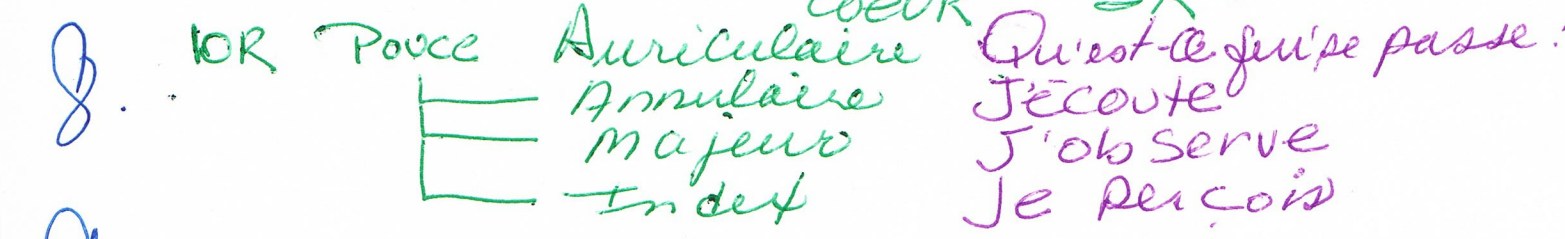 COEUR OR
8. 1OR Pouce Auriculaire Qu'est-ce qui se passe :
Annulaire J'écoute
Majeur J'observe
Index Je perçois